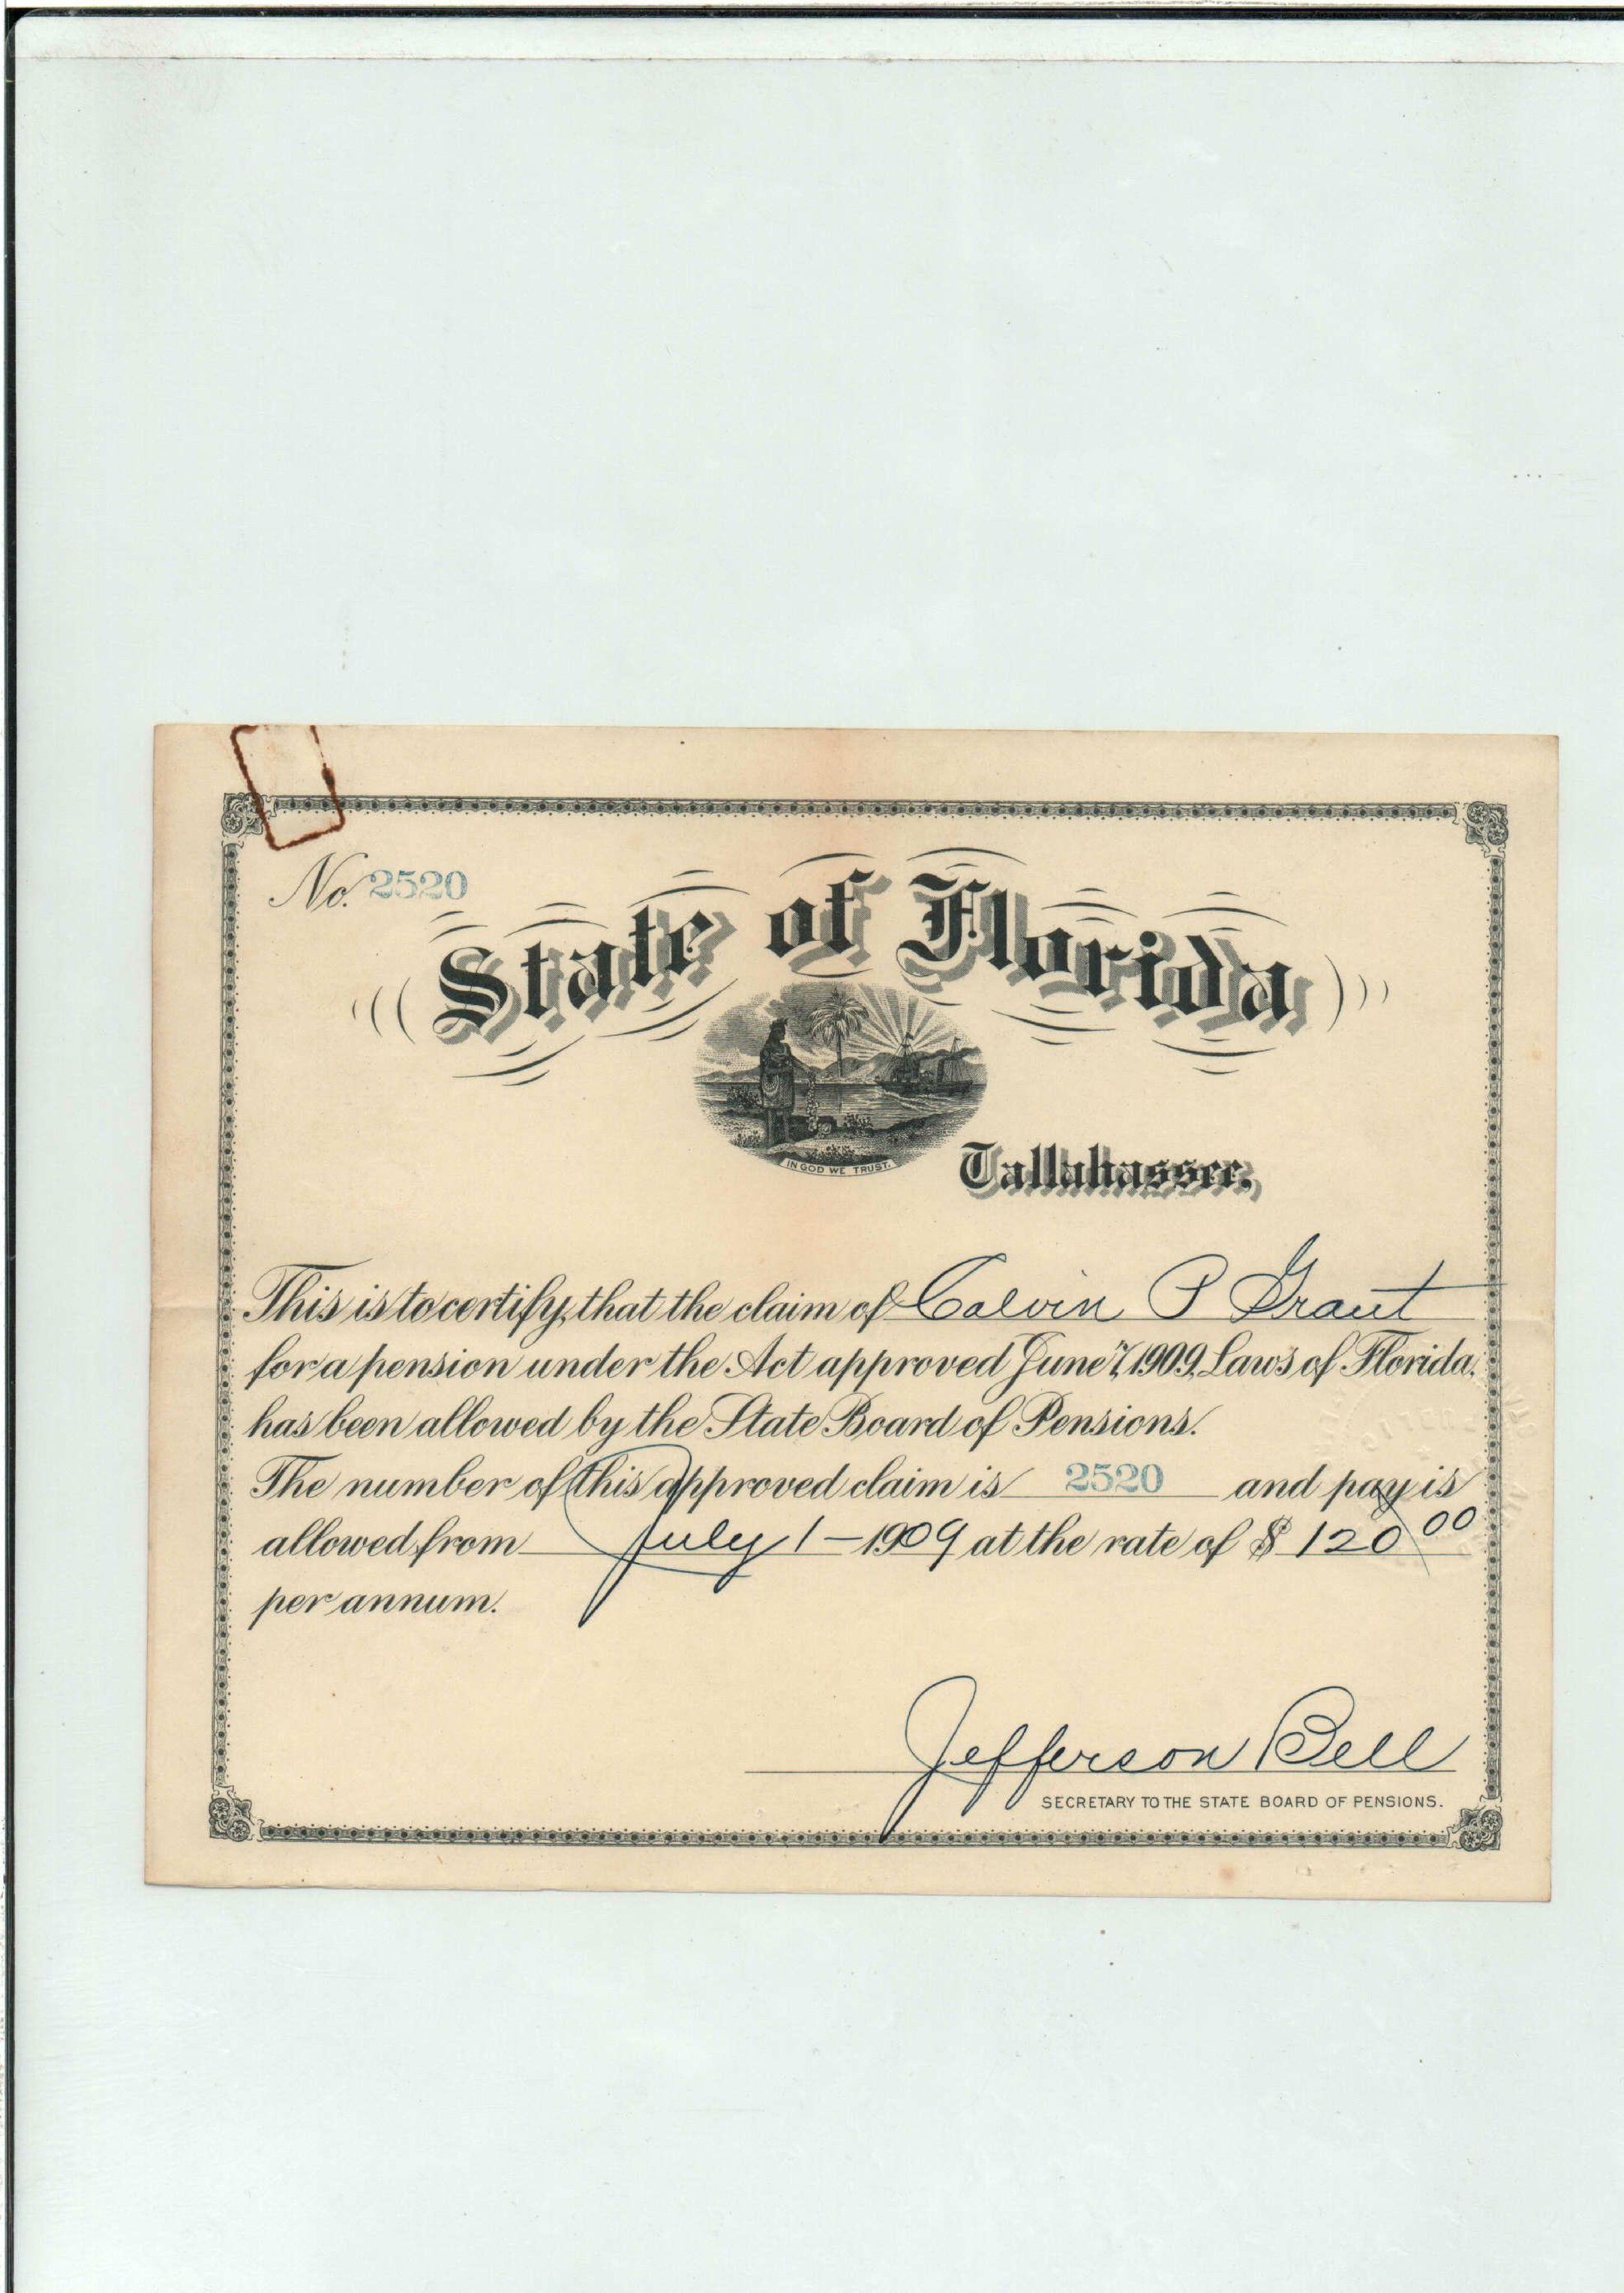 No. 2520
State of Florida
IN GOD WE TRUST.
Tallahassee,
This is to certify, that the claim of Calvin P Grant
for a pension under the Act approved June 7, 1909, Laws of Florida,
has been allowed by the State Board of Pensions.
The number of this approved claim is 2520 and pay is
allowed from July 1 - 1909 at the rate of $ 120 00
per annum.
Jefferson Bell
SECRETARY TO THE STATE BOARD OF PENSIONS.